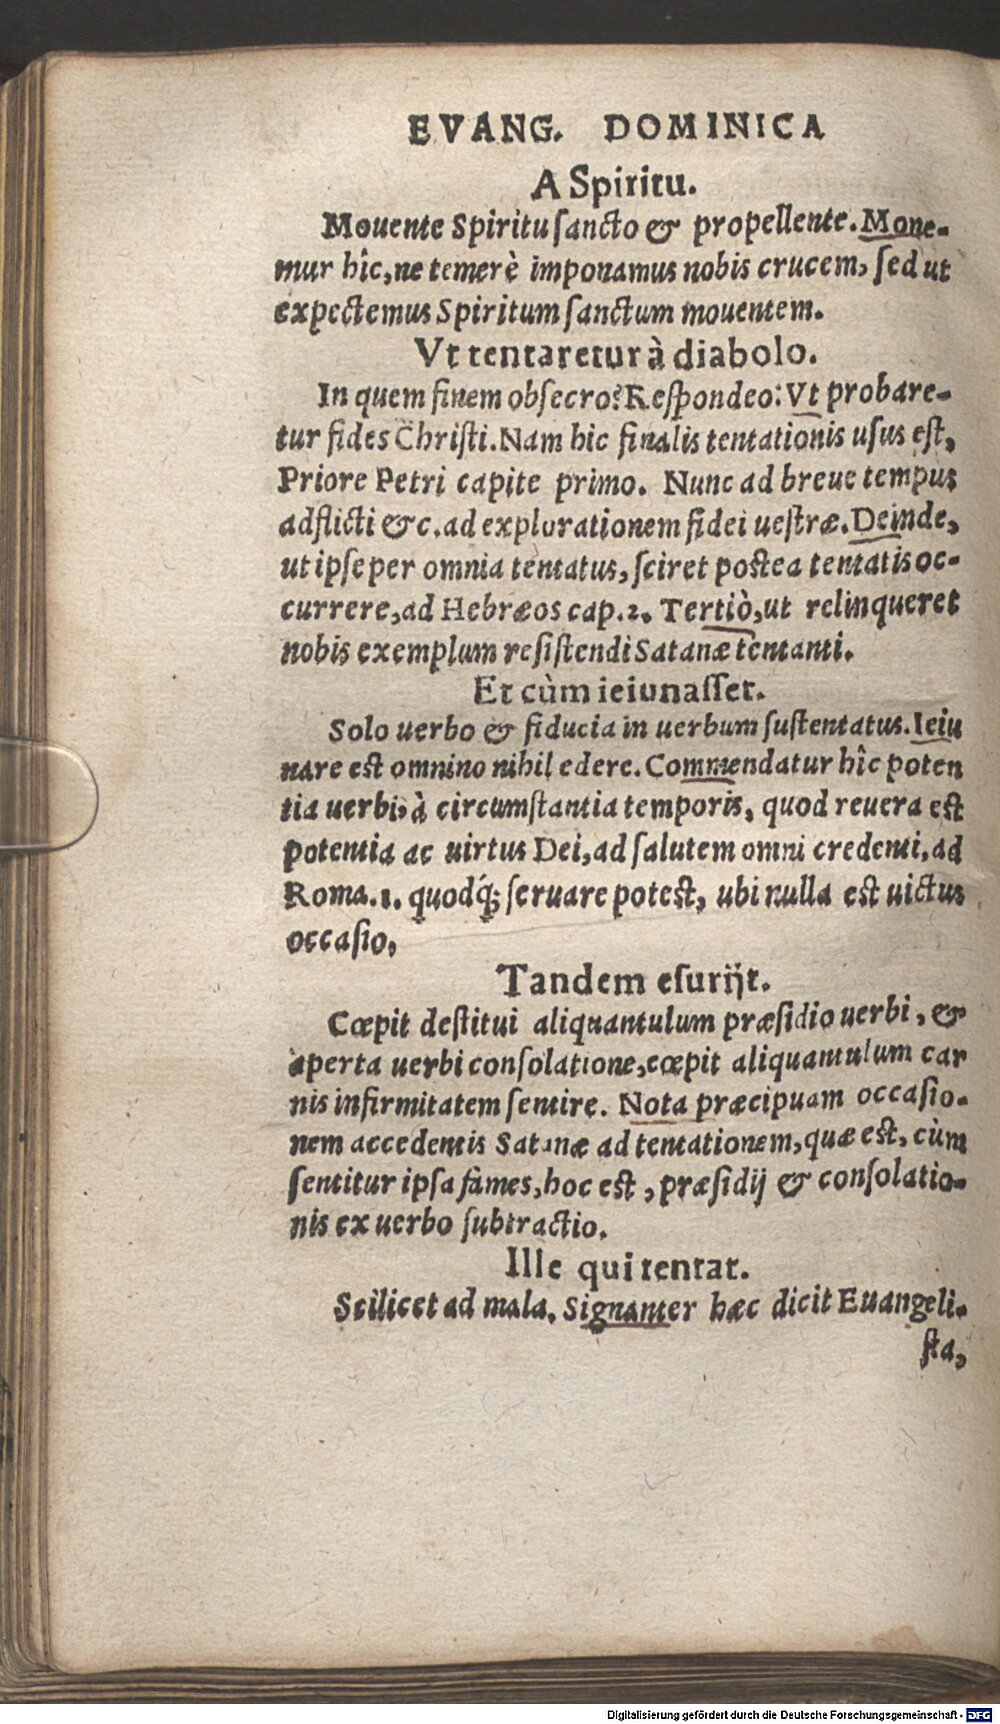 EVANG. DOMINICA
A Spiritu.
Mouente Spiritu sancto & propellente. Mone-
mur hîc, ne temerè imponamus nobis crucem, sed ut
expectemus Spiritum sanctum mouentem.
Vt tentaretur à diabolo.
In quem finem obsecro? Respondeo: Vt probare-
tur fides Christi. Nam hic finalis tentationis usus est,
Priore Petri capite primo. Nunc ad breue tempus
adflicti &c. ad explorationem fidei uestræ. Deinde,
ut ipse per omnia tentatus, sciret postea tentatis oc-
currere, ad Hebræos cap. 2. Tertiò, ut relinqueret
nobis exemplum resistendi Satanæ tentanti.
Et cùm ieiunasset.
Solo uerbo & fiducia in uerbum sustentatus. Ieiu
nare est omnino nihil edere. Commendatur hîc poten
tia uerbi, à circumstantia temporis, quod reuera est
potentia ac uirtus Dei, ad salutem omni credenti, ad
Roma. 1. quodq́; seruare potest, ubi nulla est uictus
occasio,
Tandem esurijt.
Cœpit destitui aliquantulum præsidio uerbi, &
aperta uerbi consolatione, cœpit aliquantulum car
nis infirmitatem sentire. Nota præcipuam occasio-
nem accedentis Satanæ ad tentationem, quæ est, cùm
sentitur ipsa fames, hoc est, præsidij & consolatio-
nis ex uerbo subtractio.
Ille qui tentat.
Scilicet ad mala. Signanter hæc dicit Euangeli-
sta,
Digitalisierung gefördert durch die Deutsche Forschungsgemeinschaft - DFG